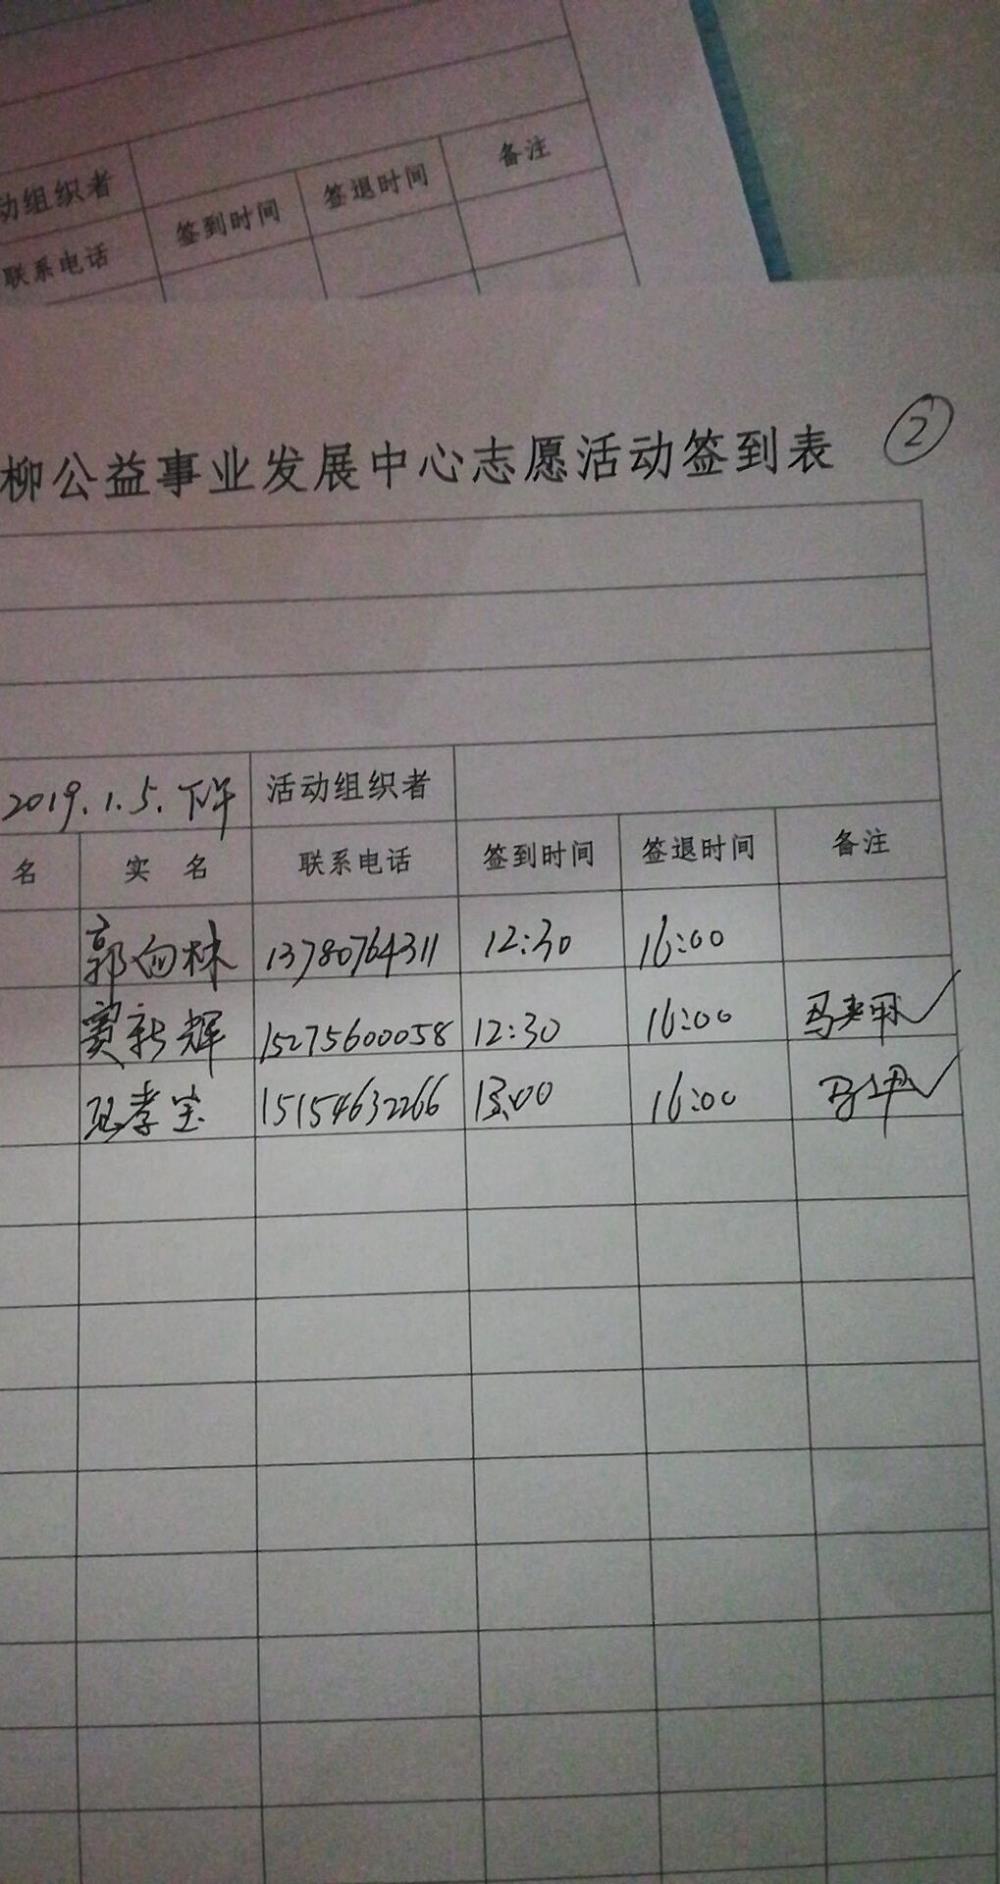 动组织者
联系电话 签到时间 签退时间 备注
柳公益事业发展中心志愿活动签到表 ②
2019.1.5.下午 活动组织者
名 实名 联系电话 签到时间 签退时间 备注
郭向林 13780764311 12:30 16:00
窦新辉 15275600058 12:30 16:00
孝宝 15154632266 13:00 16:00